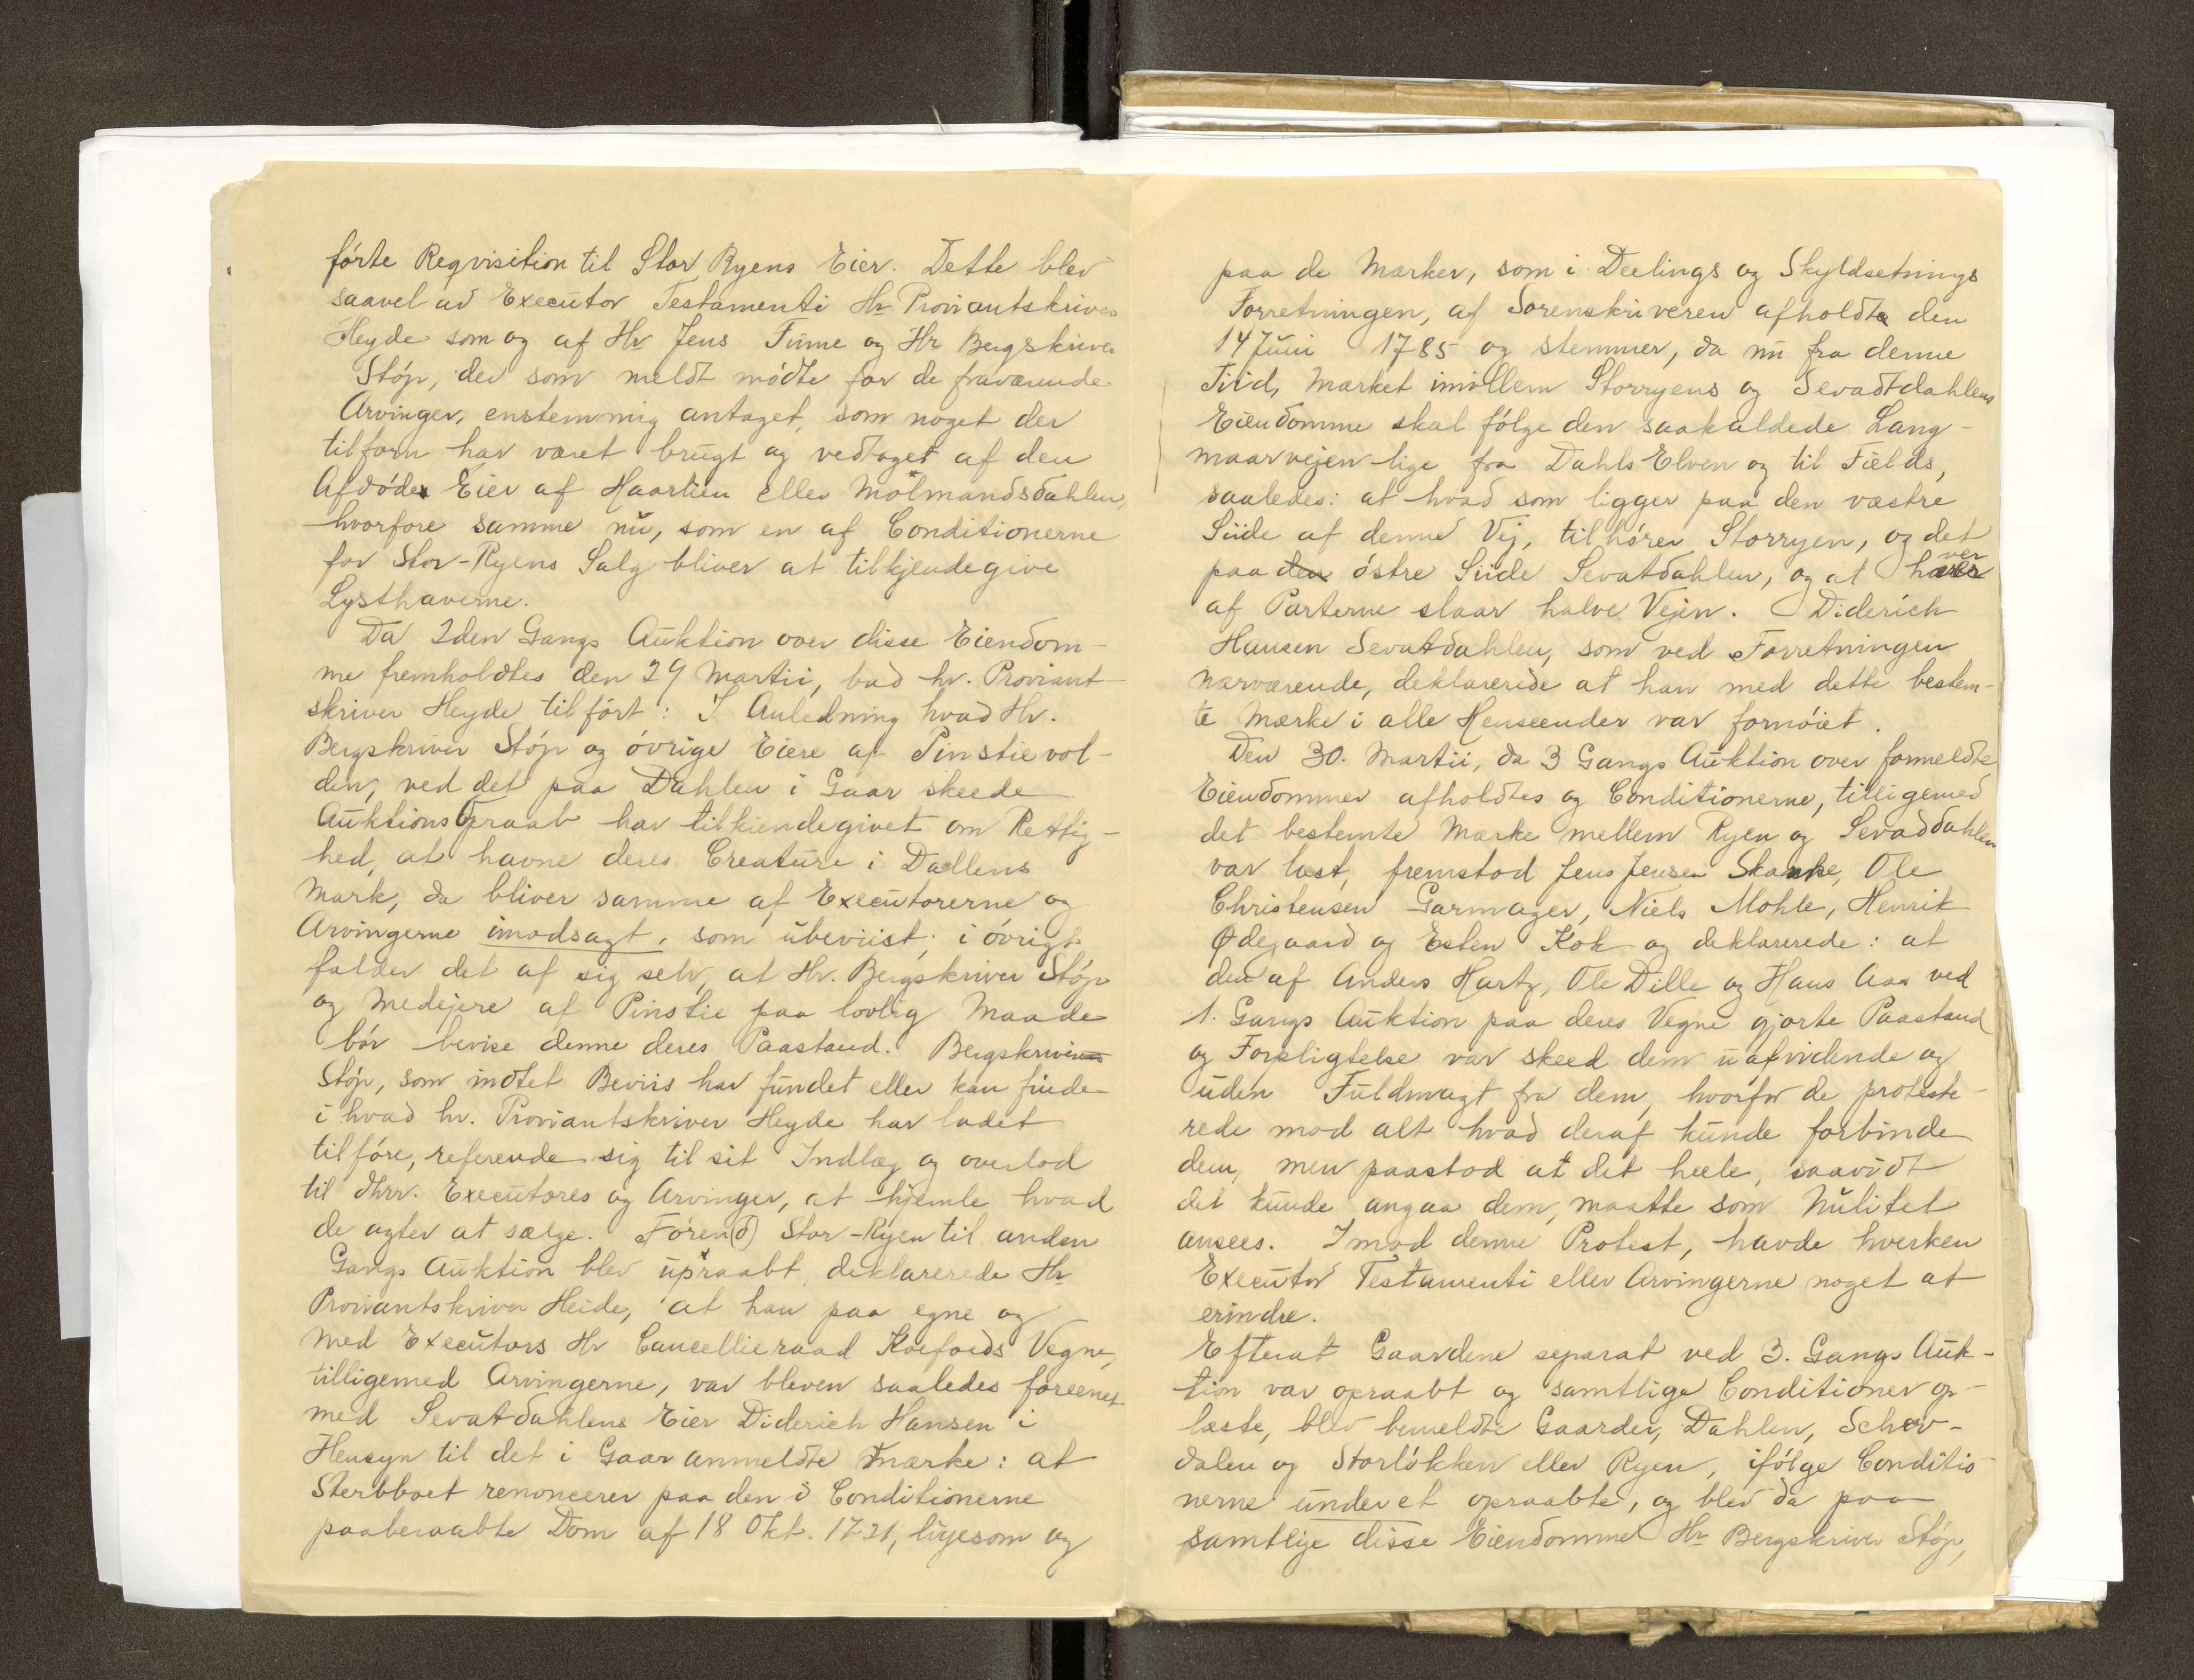 förte Reqvisition til Stor Ryens Eier. Dette blev
saavel ad Executor Testamenti Hr Proviantskriver
Heyde som og af Hr Jens Finne og Hr Bergskriver
Stöp, der som meldt mödte for de fraværende
Arvinger, enstemmig antaget, som noget der
tilforn har været brugt og vedtaget af den
Afdöde Eier af Haartien eller Molmandsdahlen,
hvorfore samme nu, som en af Conditionerne
for Stor-Ryens Salg bliver at tilkjendegive
Lysthaverne.
Da 2den Gangs Auktion over disse Eiendom-
me fremholdtes den 29 Martii, bad hr. Proviant-
skriver Heyde tilfört: I Anledning hvad Hr.
Bergskriver Stöp og övrige Eiere af Pinstievol-
den, ved det paa Dahlen i Gaar skeede
Auktions Opraab har tilkiendegivet om Rettig-
hed, at havne deres Creature i Dallens
Mark, da bliver samme af Executorerne og
Arvingerne imodsagt, som ubeviist; i övrigt
falder det af sig selv, at Hr. Bergskriver Stöp
og Medejere af Pinstie paa lovlig Maade
bör bevise denne deres Paastand. Bergskriver
Stöp, som indtet Beviis har fundet eller kan finde
i hvad hr. Proviantskriver Heyde har ladet
tilföre, referende sig til sit Indlæg og overlod
til dhrr. Executores og Arvinger, at hjemle hvad
de agter at sælge. Fören(d) Stor-Ryen til anden
Gangs Auktion blev upraabt, deklarerede Hr
Proviantskriver Heide, at han paa egne og
med Executors Hr Cancellieraad Koefoeds Vegne,
tilligemed Arvingerne, var bleven saaledes foreenet
med Sevatdahlens Eier Diderich Hansen i
Hensyn til det i Gaar anmeldte Mærke: at
Sterbboet renoncerer paa den i Conditionerne
paaberaabte Dom af 18 Okt. 1721, ligesom og
paa de Mærker, som i Deelings og Skyldsetnings
Forretningen, af Sorenskriveren afholdte den
14 Juni 1785 og stemmer, da nu fra denne
Tiid, Mærket imillem Storryens og Sevadtdahlens
Eiendomme skal fölge den saakaldede Lang-
maarvejen lige fra Dahls Elven og til Fields,
saaledes: at hvad som ligger paa den væstre
Siide af denne Vej, tilhörer Storryen, og det
paa den östre Siide Sevatdahlen, og at hver
af Parterne slaar halve Vejen. Diderich
Hansen Sevatdahlen, som ved Forretningen
nærværende, deklarerede at han med dette bestem-
te Mærke i alle Henseender var fornöiet.
Den 30. Martii, da 3 Gangs Auktion over formeldte
Eiendommer afholdtes og Conditionerne, tilligemed
det bestemte Mærke mellem Ryen og Sevaddahlen
var læst, fremstod Jens Jensen Skanke, Ole
Christensen Garmager, Niels Mohle, Henrik
Ødegaard og Esten Kok og deklarerede: at
den af Anders Hartz, Ole Dille og Hans Aas ved
1. Gangs Auktion paa deres Vegne gjorte Paastand
og Forpligtelse var skeed dem uafvidende og
uden Fuldmagt fra dem, hvorfor de proteste-
rede mod alt hvad deraf kunde forbinde
dem, men paastod at det heele, saavidt
det kunde angaa dem, maatte som Nulitet
ansees. Imod denne Protest, havde hverken
Executor Testamenti eller Arvingerne noget at
erindre.
Efterat Gaardene separat ved 3. Gangs Auk-
tion var opraabt og samtlige Conditioner op-
læste, blev bemeldte Gaarder, Dahlen, Schev-
dalen og Storlökken eller Ryen, ifölge Conditio-
nerne under et opraabte, og blev da paa
samtlige disse Eiendommer Hr Bergskriver Stöp,